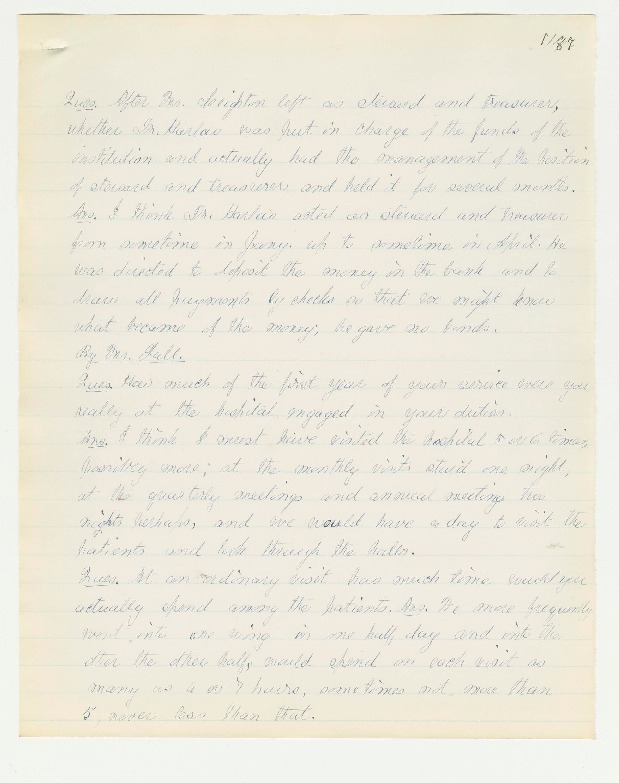 1187
Ques. After Mr. Leighton left as steward and treasurer,
whether Dr. Harlow was put in charge of the funds of the
institution and actually had the management of the position
of steward and treasurer and held it for several months.
Ans. I think Dr. Harlow acted as steward and treasurer
from sometime in Jany. up to sometime in April. He
was directed to deposit the money in the bank and to
draw all payments by checks so that we might know
what became of the money; he gave no bonds.
By Mr. Hall.
Ques. How much of the first year of your service were you
really at the hospital, engaged in your duties.
Ans. I think I must have visited the hospital 5 or 6 times,
possibly more; at the monthly visits staid one night,
at the quarterly meetings and annual meeting two
nights perhaps, and we would have a day to visit the
patients and look through the halls.
Ques. At an ordinary visit how much time would you
actually spend among the patients. Ans. We more frequently
went into one wing in one half day and into the
other the other half, would spend on each visit as
many as 6 or 7 hours, sometimes not more than
5, never less than that.